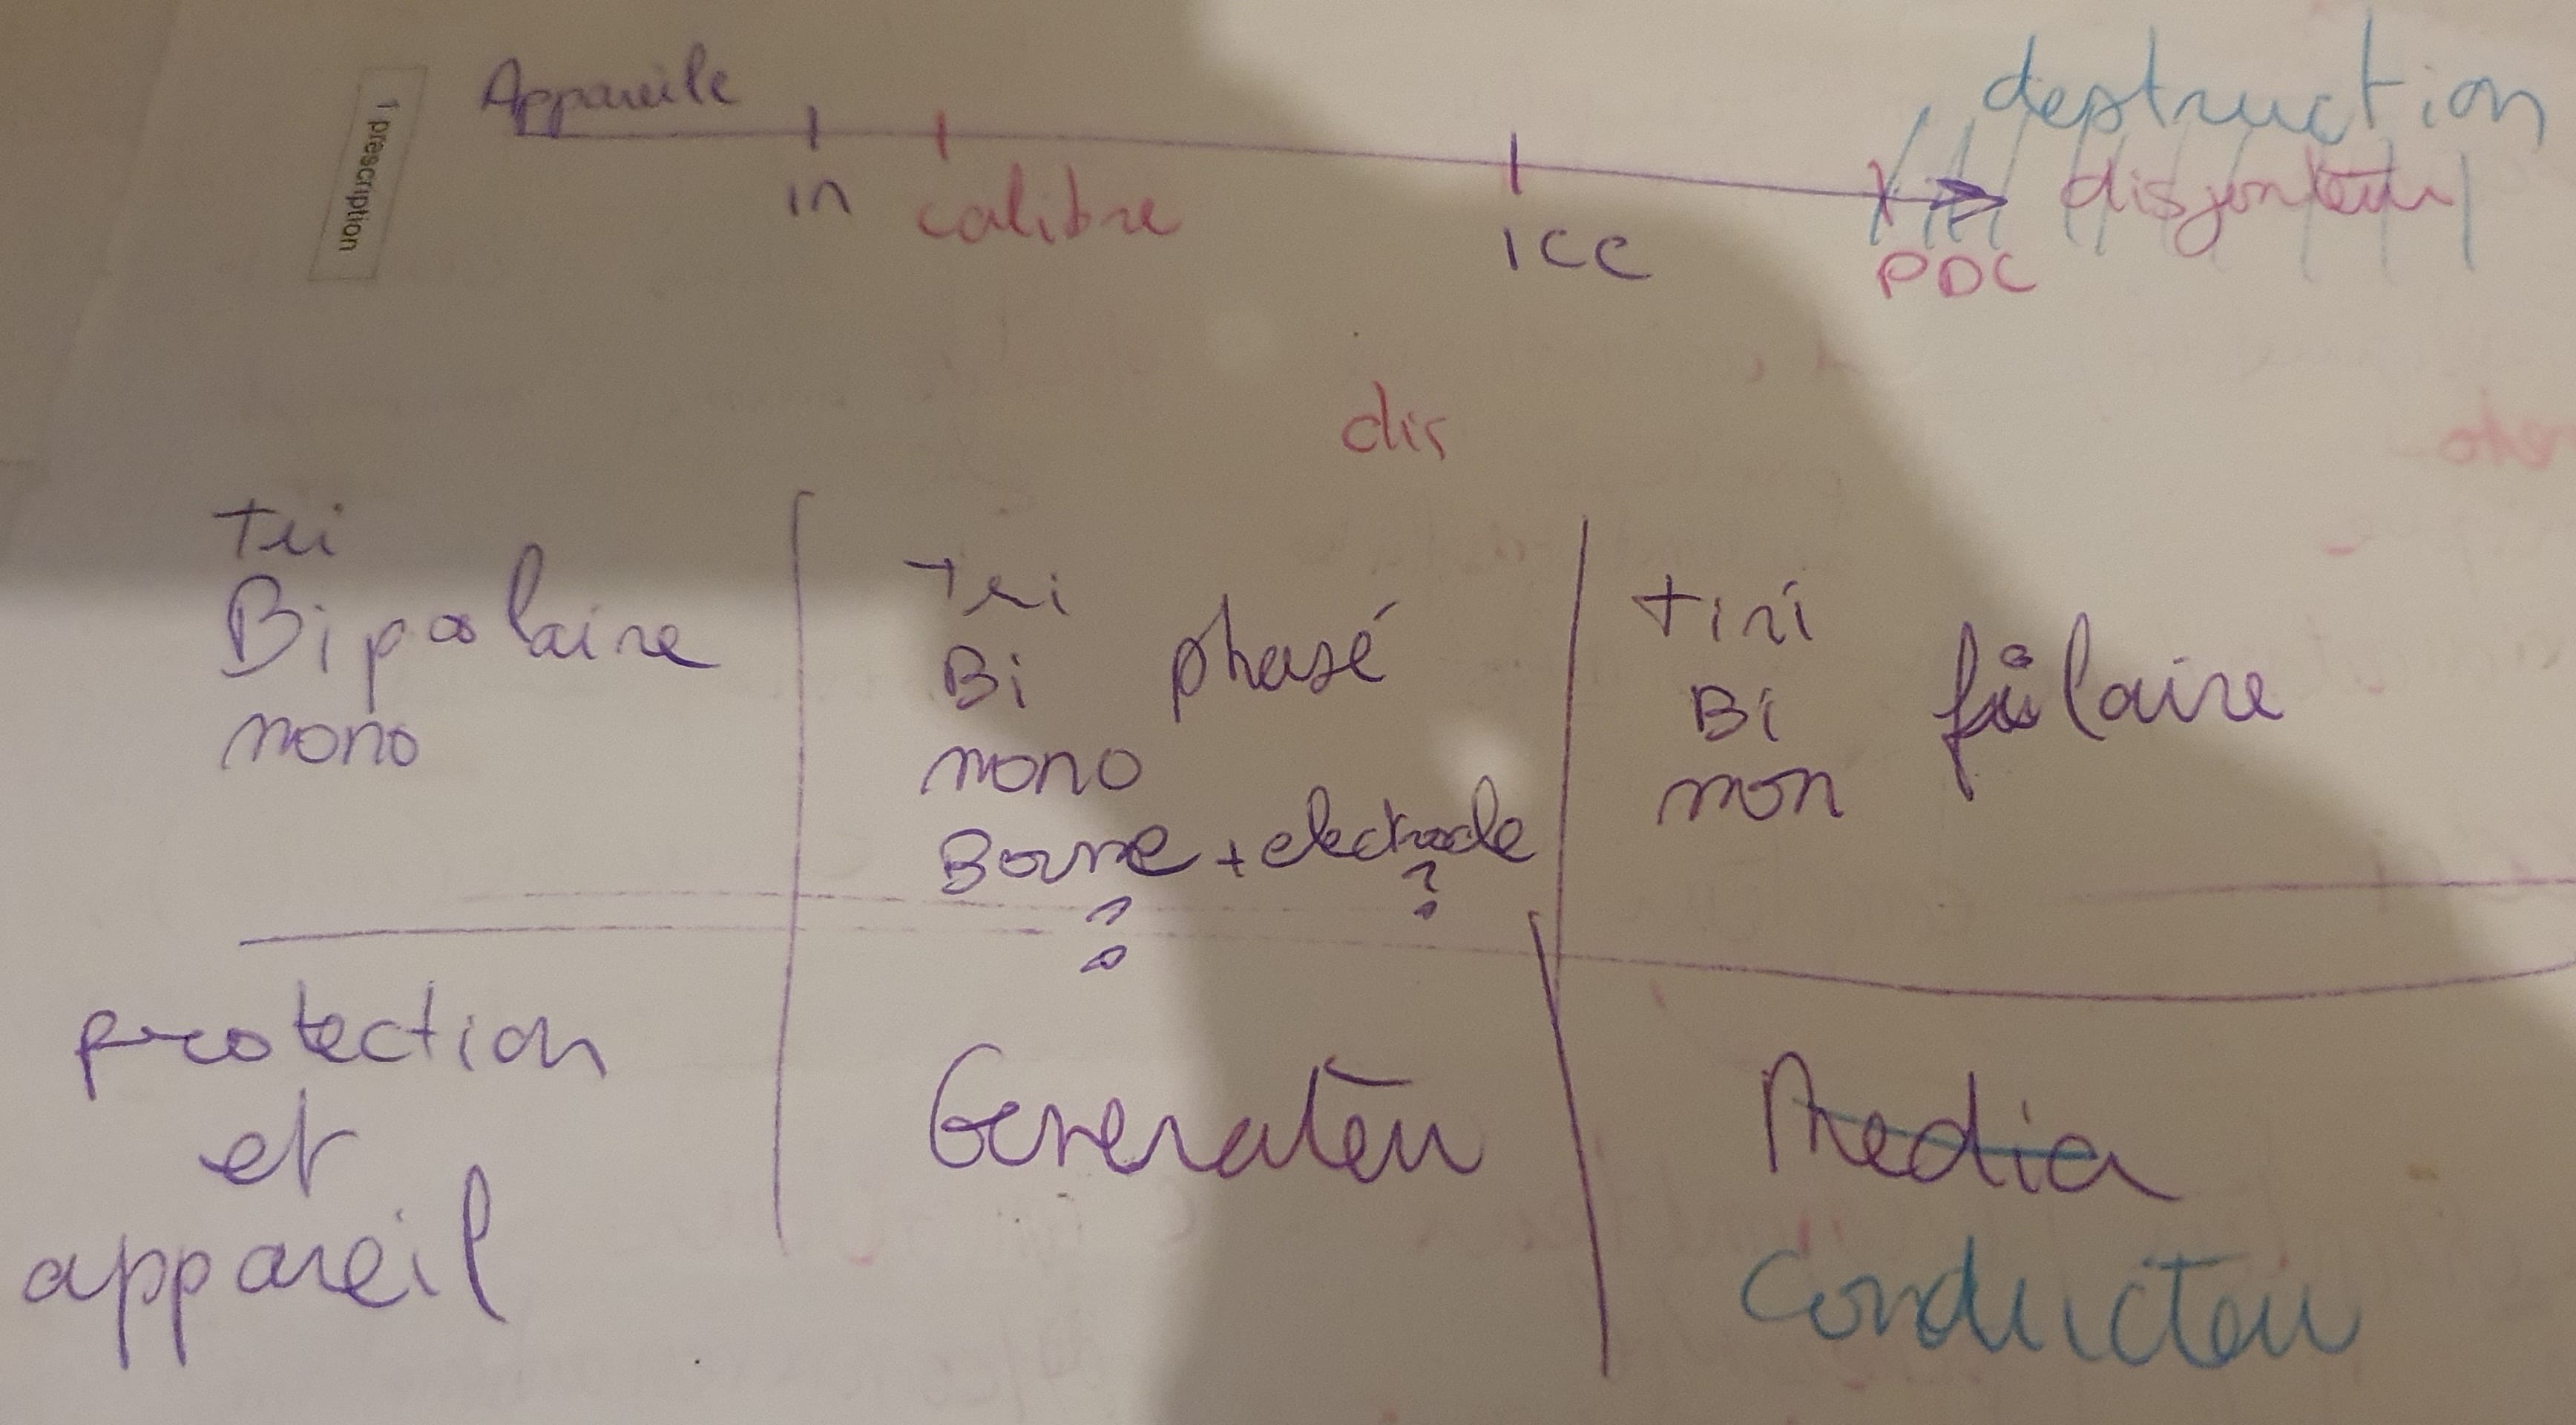 1 prescription
Appareile
destruction
in calibre ICC PDC disjonteur
dis
Tri
Bipolaire
mono
Tri
Bi phasé
mono
Borne + electrode
? ?
Tiri
Bi filaire
mon
protection
et
appareil
Generateur
Media
Conducteur